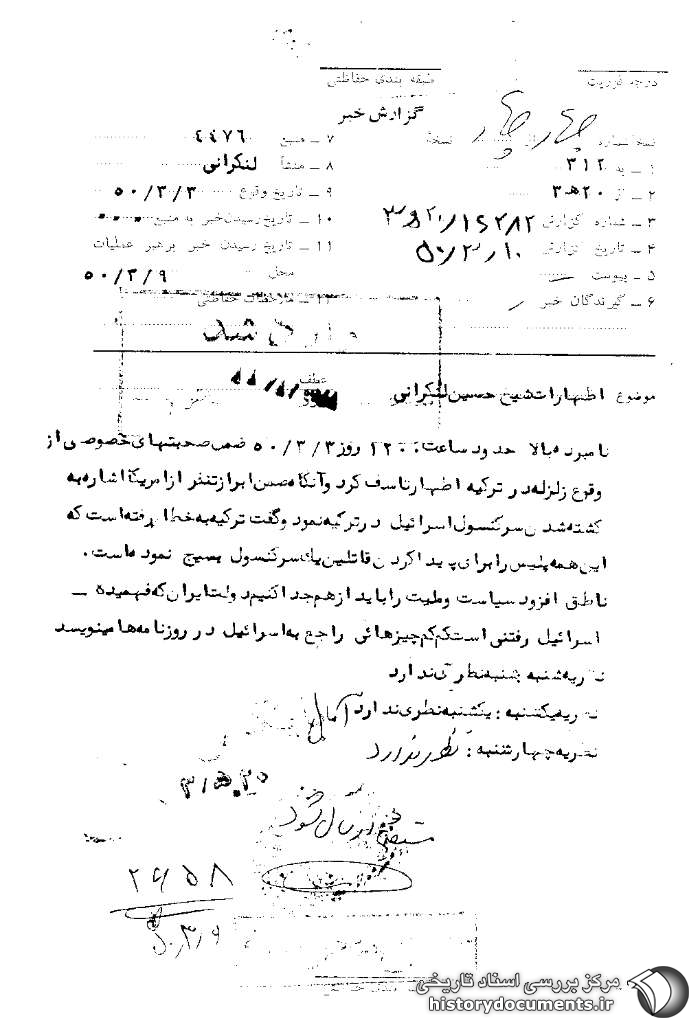 درجه فوریت
طبقه بندی حفاظتی
گزارش خبر
نسخه شماره چهار از چهار نسخه
۱ ــ به ۳۱۲
۲ ــ از ۲۰ ه ۳
۳ ــ شماره گزارش
۴ ــ تاریخ گزارش ۵۰/۳/۱۰
۵ ــ پیوست
۶ ــ گیرندگان خبر
۷ ــ منبع ۴۴۷۶
۸ ــ منشأ لنکرانی
۹ ــ تاریخ وقوع ۵۰/۳/۳
۱۰ ــ تاریخ رسیدن خبر به منبع
۱۱ ــ تاریخ رسیدن خبر برهبر عملیات
محل ۵۰/۳/۹
۱۲ ــ ملاحظات حفاظتی
عطف
موضوع اظهارات شیخ حسین لنکرانی
نامبرده بالا حدود ساعت ۱۲۰۰ روز ۵۰/۳/۳ ضمن صحبتهای خصوصی از
وقوع زلزله در ترکیه اظهار تاسف کرد و آنگاه ضمن ابراز تنفر از امریکا اشاره به
کشته شدن سرکنسول اسرائیل در ترکیه نمود و گفت ترکیه به خطا رفته است که
این همه پلیس را برای پیدا کردن قاتلین یک سرکنسول بسیج نموده است.
ناطق افزود سیاست وطیت را باید از هم جدا کنیم دولت ایران که فهمیده ــ
اسرائیل رفتنی است کم کم چیزهائی راجع به اسرائیل در روزنامه ها مینویسد
نظریه شنبه شنبه نظری ندارد
نظریه یکشنبه : یکشنبه نظری ندارد
نظریه چهارشنبه : نظری ندارد
۲۶۵۸
۵۰/۳/۹
مرکز بررسی اسناد تاریخی
historydocuments.ir